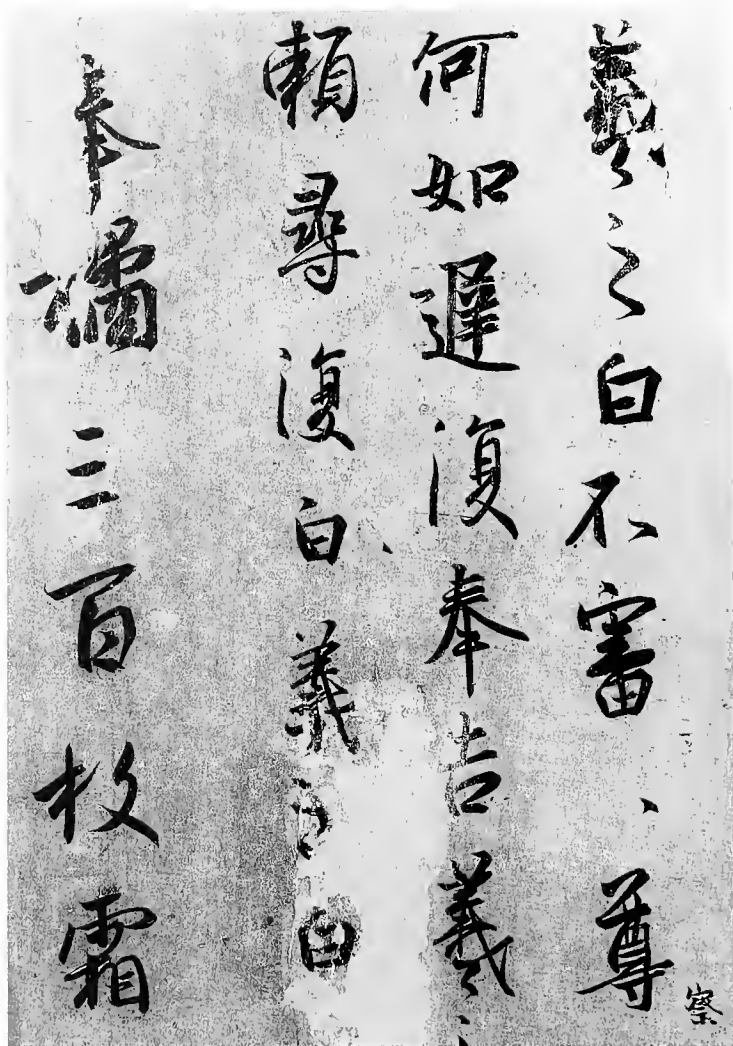 羲之白不審、尊
察
何如遲復奉告羲之
賴尋復白羲之白
奉橘三百枚霜